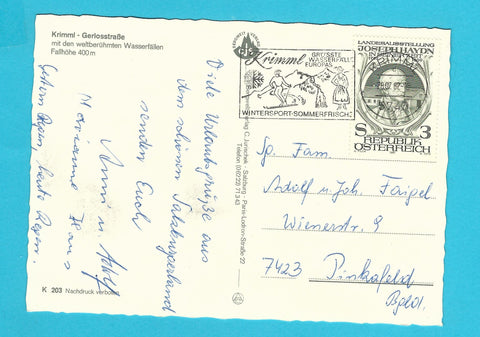 Krimml - Gerlosstraße
mit den weltberühmten Wasserfällen
Fallhöhe 400 m
Viele Urlaubsgrüße aus
dem schönen Salzburgerland
senden Euch
Anni u. Adolf
Marianne Hans
Gestern Regen, heute Regen.
K 203 Nachdruck verboten
C. Jurischek - Salzburg - Paris-Lodron-Straße 22
Telefon (06222) 71 3 43
Krimml
GRÖSSTE
WASSERFÄLLE
EUROPAS
WINTERSPORT-SOMMERFRISCHE
KRIMML
LANDESAUSSTELLUNG
JOSEPH HAYDN
IN EISENSTADT
S 3
REPUBLIK
ÖSTERREICH
Sp. Fam.
Adolf u. Joh. Faipel
Wienerstr. 9
7423 Pinkafeld
Bgld.